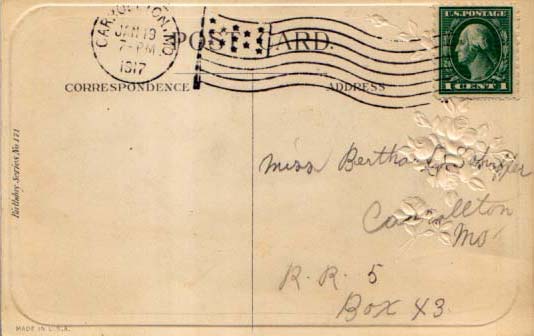 CARROLLTON, MO.
JAN 19
7-PM
1917
POST CARD.
U.S. POSTAGE
1 CENT 1
CORRESPONDENCE
ADDRESS
Birthday Series No. 171
Miss Bertha
Carrollton
Mo
R. R. 5
Box 43.
MADE IN U.S.A.